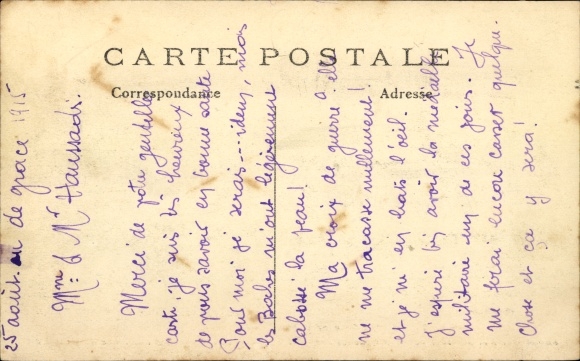 CARTE POSTALE
Correspondance
Adresse
25 août an de grace 1915
Mme & Mr Haussadi.
Merci de votre gentille
carte, je suis très heureux
de vous savoir en bonne santé
Pour moi je serais --- idem, mais
les Balos m'ont légèrement
cabossé la peau!
Ma croix de guerre, elle
ne me tracasse nullement!
et je ne en bats l'oeil.
J'espère bien avoir la médaille
militaire un de ces jours. Je
me ferai encore casser quelque
chose et ça y sera!